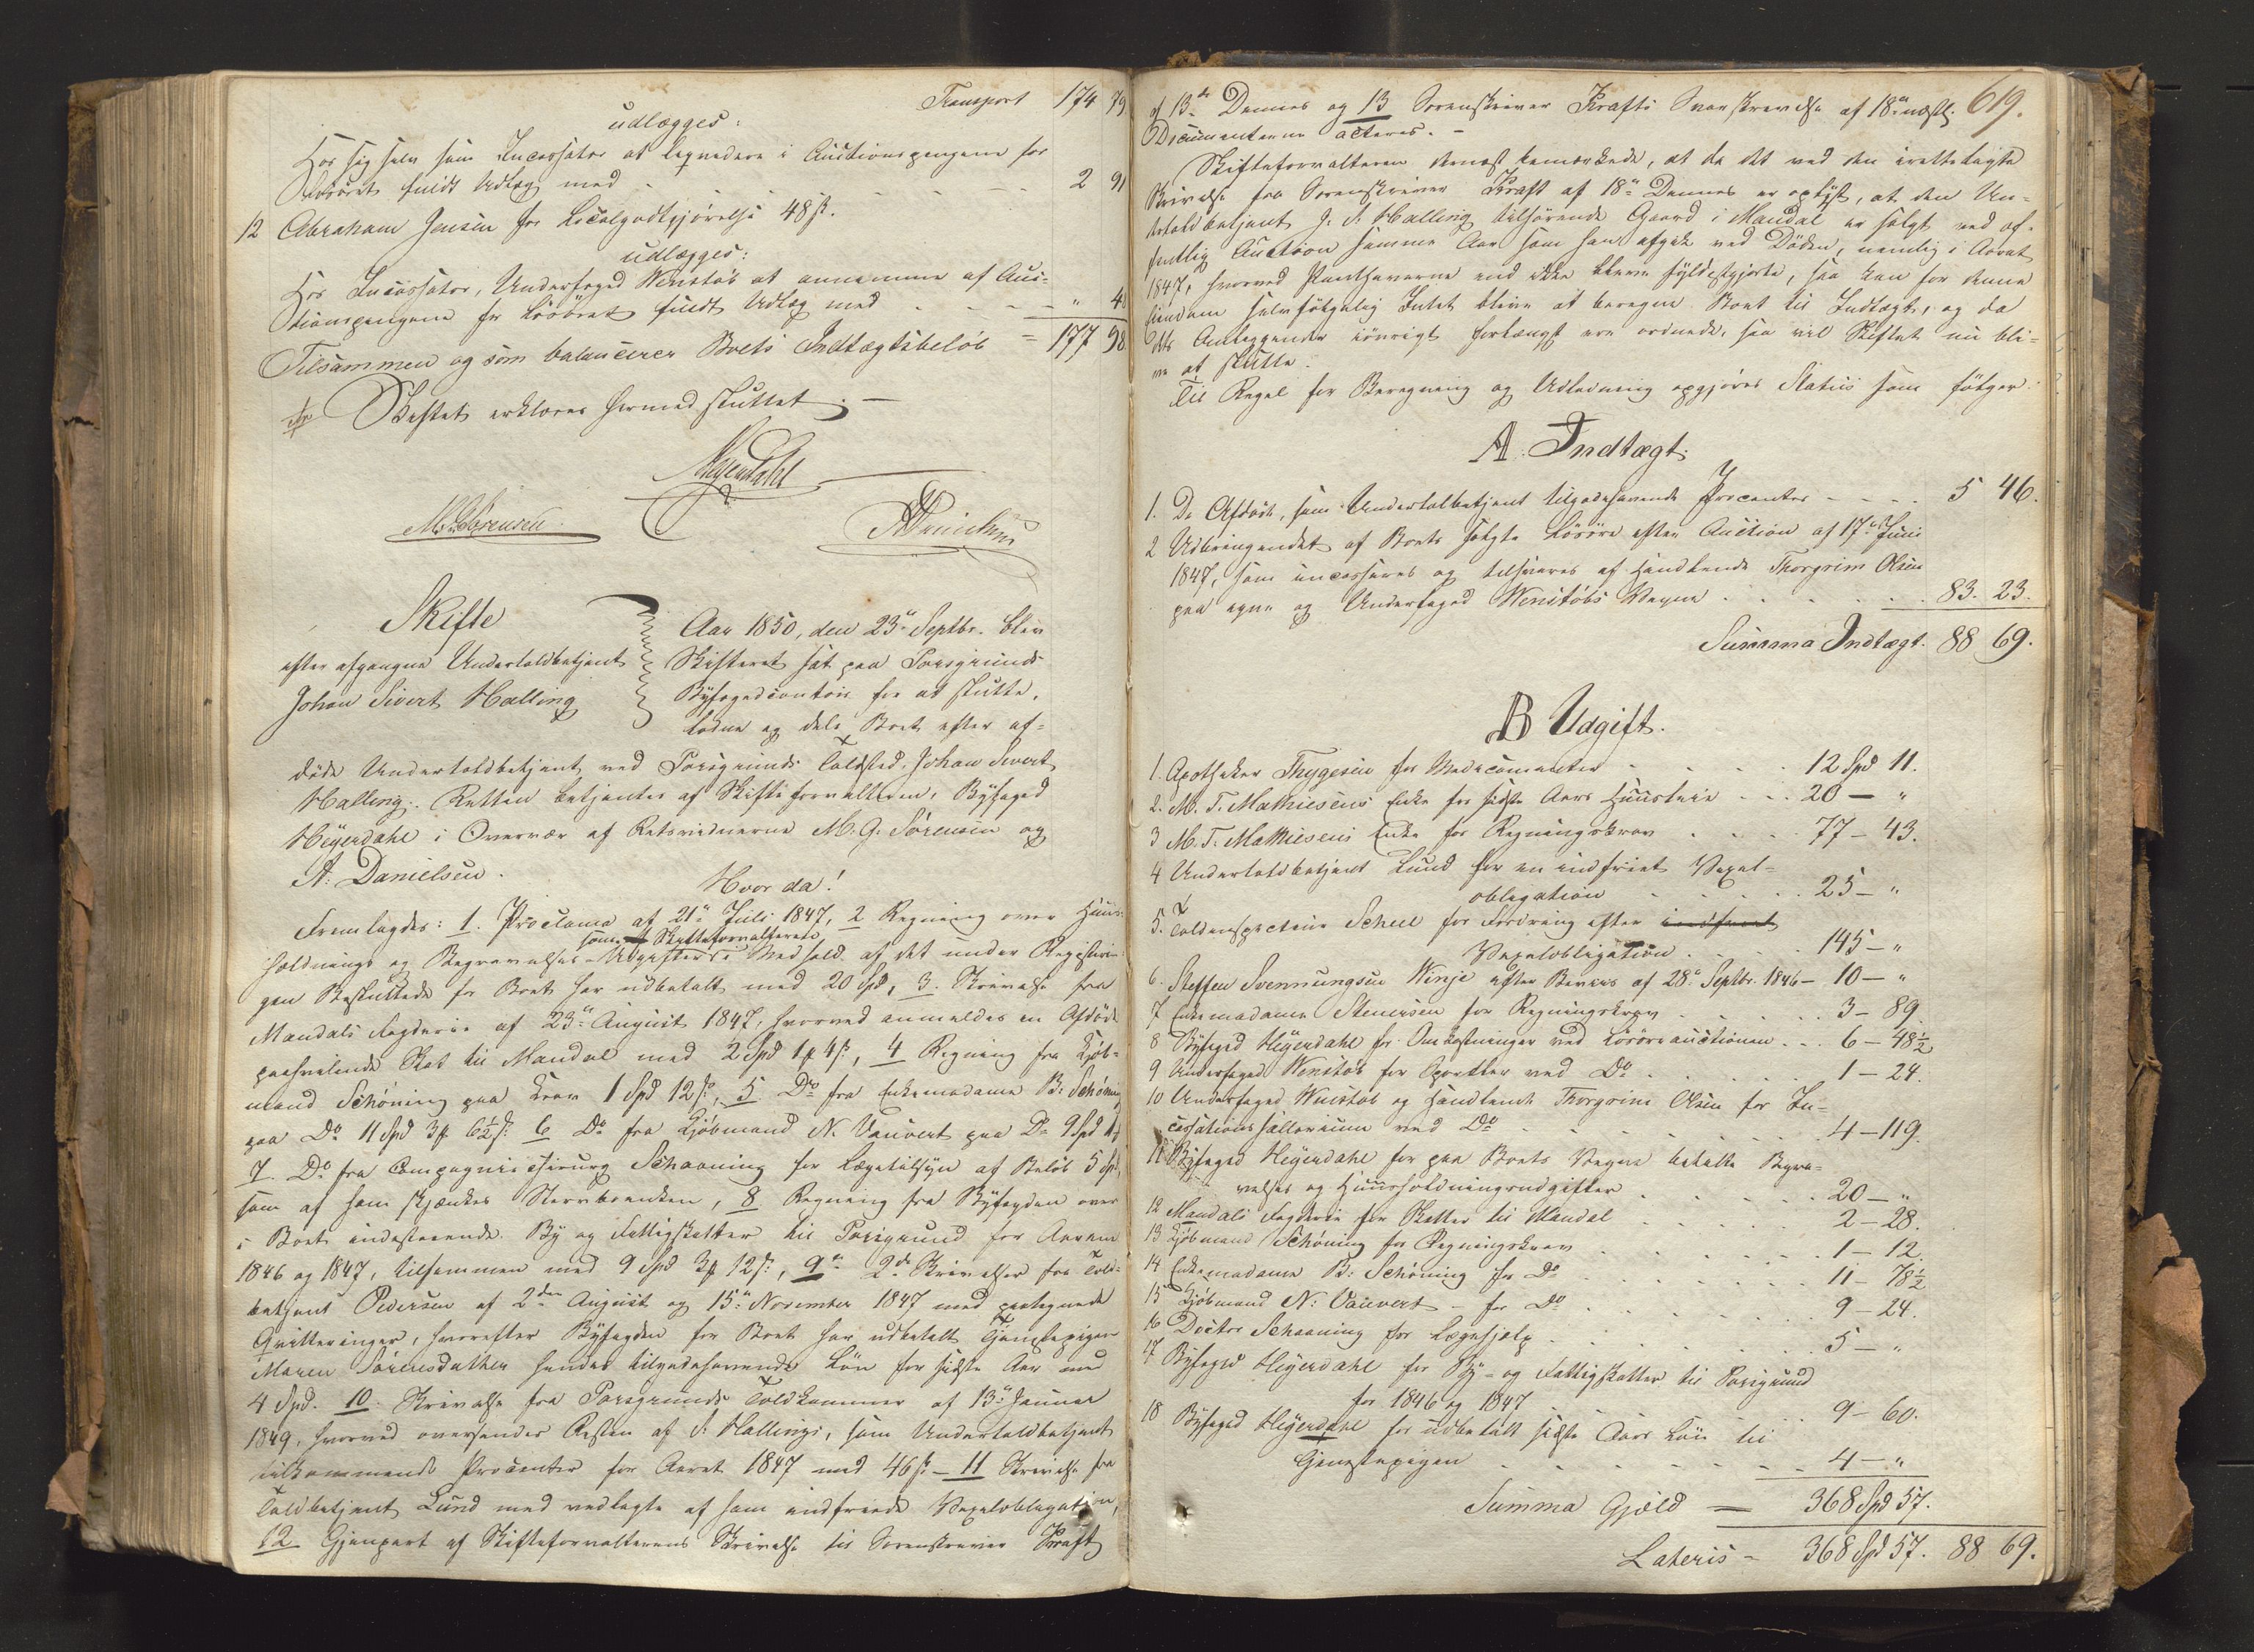 Transport 174 79
udlægges:
Hos sig selv som Incassator at liqvidere i Auctionspengene for
Løsøret fuldt Udlæg med 2 91
12 Abraham Jensen for Localgodtgjørelse 48 ß.
udlægges:
Hos Incassator, Underfoged Wenstøb at annamme af Auc=
tionspengene for Løsøret fuldt Udlæg med " 48
Tilsammen og som balancerer Boets Indtægtsbeløb = 177 98
Skiftet erklæres hermed sluttet. —
Heyerdahl
M. G. Sørensen
A Danielsen
Skifte
efter afgangne Undertoldbetjent
Johan Sivert Halling
Aar 1850, den 23de Septbr. blev
Skifteret sat paa Porsgrunds
Byfogedcontoir for at slutte,
lodne og dele Boet efter af=
døde Undertoldbetjent ved Porsgrunds Toldsted, Johan Sivert
Halling. Retten betjentes af Skifteforvalteren, Byfoged
Heyerdahl i Overvær af Retsvidnerne M. G. Sørensen og
A. Danielsen.
Hvor da!
Fremlagdes: 1. Proclama af 21de Juli 1847, 2 Regning over Huus=
holdnings og Begravelses-Udgifter
som Skifteforvalteren
i Medhold af det under Registerin=
gen Besluttede for Boet har udbetalt med 20 Spd, 3. Skrivelse fra
Mandals Fogderie af 23de August 1847, hvorved anmeldes en Afdøde
paahvilende Skat til Mandal med 2 Spd 1 ₰ 4 ß, 4 Regning fra Kjøb=
mand Schøning paa Krav 1 Spd 12 ß, 5 Do fra Enkemadame B: Schøning
paa Do 11 Spd 3 ₰ 6½ ß. 6 Do fra Kjøbmand N. Vauvert paa Do 9 Spd
7. Do fra Compagniechirurg Schaaning for Lægetilsyn af Beløb 5 Spd,
som af ham skjænkes Stervboenken, 8 Regning fra Byfogden over
i Boet indestaaende By og Fattigskatter til Porsgrund for Aarene
1846 og 1847, tilsammen med 9 Spd 2 ₰ 12 ß, 9de 2de Skrivelser fra Told=
betjent Pedersen af 2den August og 15de November 1847 med paategnede
Qvitteringer, hvorefter Byfogden for Boet har udbetalt Tjenestepigen
Maren Sørensdatter hendes tilgodehavende Løn for sidste Aar med
4 Spd. 10. Skrivelse fra Porsgrunds Toldkammer af 13de Januar
1849, hvorved oversendes Resten af S. Hallings, som Undertoldbetjent
tilkommende Procenter for Aaret 1847 med 46 ß – 11 Skrivelse fra
Toldbetjent Lund med vedlagte af ham indfriede Vexelobligation,
12 Gjenpart af Skifteforvalterens Skrivelse til Sorenskriver Kraft
619.
af 13de Dennes og 13 Sorenskriver Krafts Svarskrivelse af 18de næstl.
Documenterne acteres. –
Skifteforvalteren dernæst bemærkede, at da det ved den irettelagte
Skrivelse fra Sorenskriver Kraft af 18de Dennes er oplyst, at den Un=
dertoldbetjent J. S. Halling tilhørende Gaard i Mandal er solgt ved of=
fentlig Auction samme Aar som han afgik ved Døden, nemlig i Aaret
1847, hvorved Panthaverne end ikke bleve fyldestgjorte, saa kan for denne
Eiendom selvfølgelig Intet blive at beregne Boet til Indtægt, og da
dets Anliggender iøvrigt forlængst ere ordnede, saa vil Skiftet nu bli=
ve at slutte.
Til Regel for Beregning og Udlodning opgjøres Status som følger:
A. Indtægt.
1. De Afdøde, som Undertoldbetjent tilgodehavende Procenter 5 46.
2 Udbringendet af Boets solgte Løsøre efter Auction af 17de Juni
1847, som incasseres og tilsvares af Handlende Thorgrim Olsen
paa egne og Underfoged Wenstøbs Vegne 83. 23.
Summa Indtægt. 88 69.
B Udgift.
1. Apotheker Thygesen for Medicamenter 12 Spd 11.
2. M. T. Mathiesens Enke for sidste Aars Huusleie 20 – "
3 M. T. Mathiesens Enke for Regningskrav 77 – 43.
4 Undertoldbetjent Lund for en indfriet Vexel=
obligation 25 – "
5. Toldinspecteur Scheel for Fordring efter indfriet
Vexelobligation 145 – "
6. Steffen Svennungsen Winje efter Beviis af 28de Septbr. 1846 – 10 – "
7 Enkemadame Stenersen for Regningskrav 3 – 89.
8 Byfoged Heyerdahl for Omkostninger ved Løsøreauctionen 6 – 48½
9 Underfoged Wenstøb for Sportler ved Do 1 – 24.
10 Underfoged Wenstøb og Handlende Thorgrim Olsen for In=
cassationssallarium ved Do 4 – 119.
11 Byfoged Heyerdahl for paa Boets Vegne betalte Begra=
velses og Huusholdningsudgifter 20 – "
12 Mandals Fogderie for Skatter til Mandal 2 – 28.
13 Kjøbmand Schøning for Regningskrav 1 – 12.
14 Enkemadame B: Schøning for Do 11 – 78½
15 Kjøbmand N: Vauvert – for Do 9 – 24.
16 Doctor Schaaning for Lægehjælp 5 – "
17 Byfoged Heyerdahl for By- og Fattigskatter til Porsgrund
for 1846 og 1847 9 – 60.
18 Byfoged Heyerdahl for udbetalt sidste Aars Løn til
Tjenestepigen 4 – "
Summa Gjæld = 368 Spd 57.
Lateris = 368 Spd 57. 88 69.